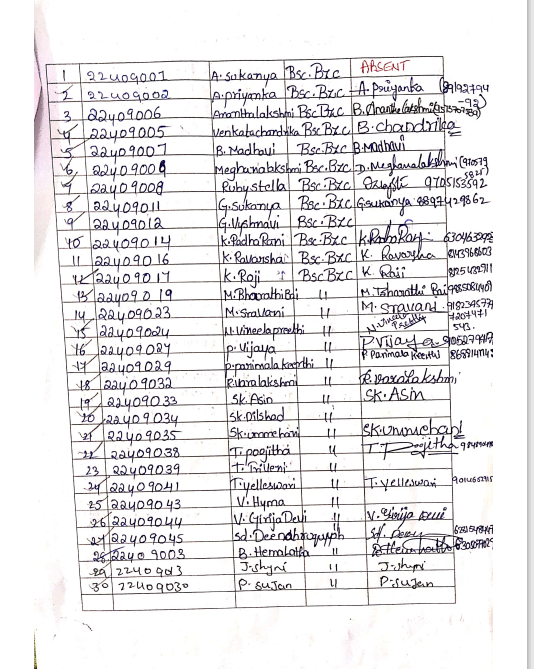 1 22409001 A. Sukanya Bsc.Bzc ABSENT
2 22409002 A.priyanka Bsc.Bzc A. Priyanka
3 22409006 Ananthalakshmi Bsc Bzc
4 22409005 Venkatachandrika Bsc.Bzc B.chandrika
5 22409007 B. Madhavi Bsc.Bzc B.Madhavi
6 Meghanalakshmi Bsc.Bzc D.Meghanalakshmi
7 22409008 Rubystella Bsc.Bzc 9705153592
8 22409011 G.sukanya Bsc.Bzc G.sukanya
9 22409012 G.Vyshnavi Bsc.Bzc
10 22409014 K.RadhaRani Bsc.Bzc
11 22409016 K.Ravarsha Bsc.Bzc K. Ravarsha
12 22409017 K. Raji Bsc Bzc K. Raji
13 22409019 M.BharathiBai 11 M. Bharathi Bai
14 22409023 M.Sravani 11 M. Sravani
15 22409024 N.Vineelapreethi 11
16 22409027 P. Vijaya 11 P Vijaya
17 22409029 p.parimalakeerthi 11 P. Parimala Keerthi
18 22409032 R.varalakshmi 11 R.varalakshmi
19 22409033 SK.Asin 11 SK. Asin
20 22409034 SK.Dilshad 11
21 22409035 11
22 22409038 T. poojitha 11 T. Poojitha
23 22409039 T. Triveni 11
24 22409041 T.yelleswari 11 T. yelleswari
25 22409043 V. Hyma 11
26 22409044 V. Girija Devi 11 V. Girija Devi
27 22409045 11
28 22409003 B. Hemalatha 11
29 22409013 J.shyni 11 J. shyni
30 22409030 P. Sujan 11 P. Sujan